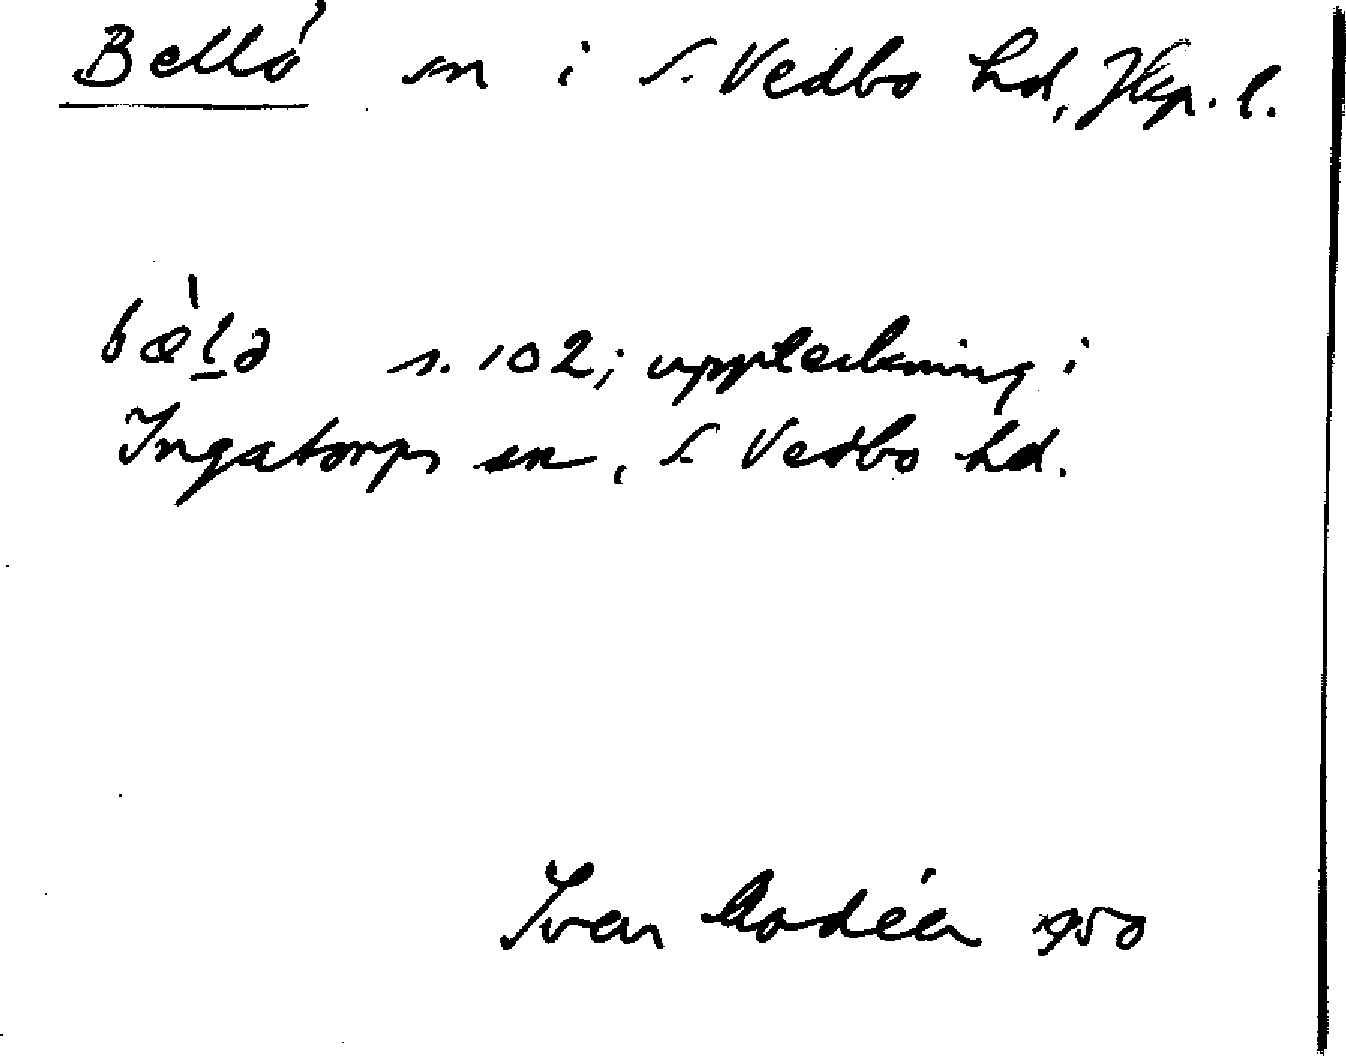 Bellö sn i S. Vedbo hd, Jkp. l.
s. 102; uppteckning i
Ingatorps sn, S. Vedbo hd.
Ivar Modéer 1950